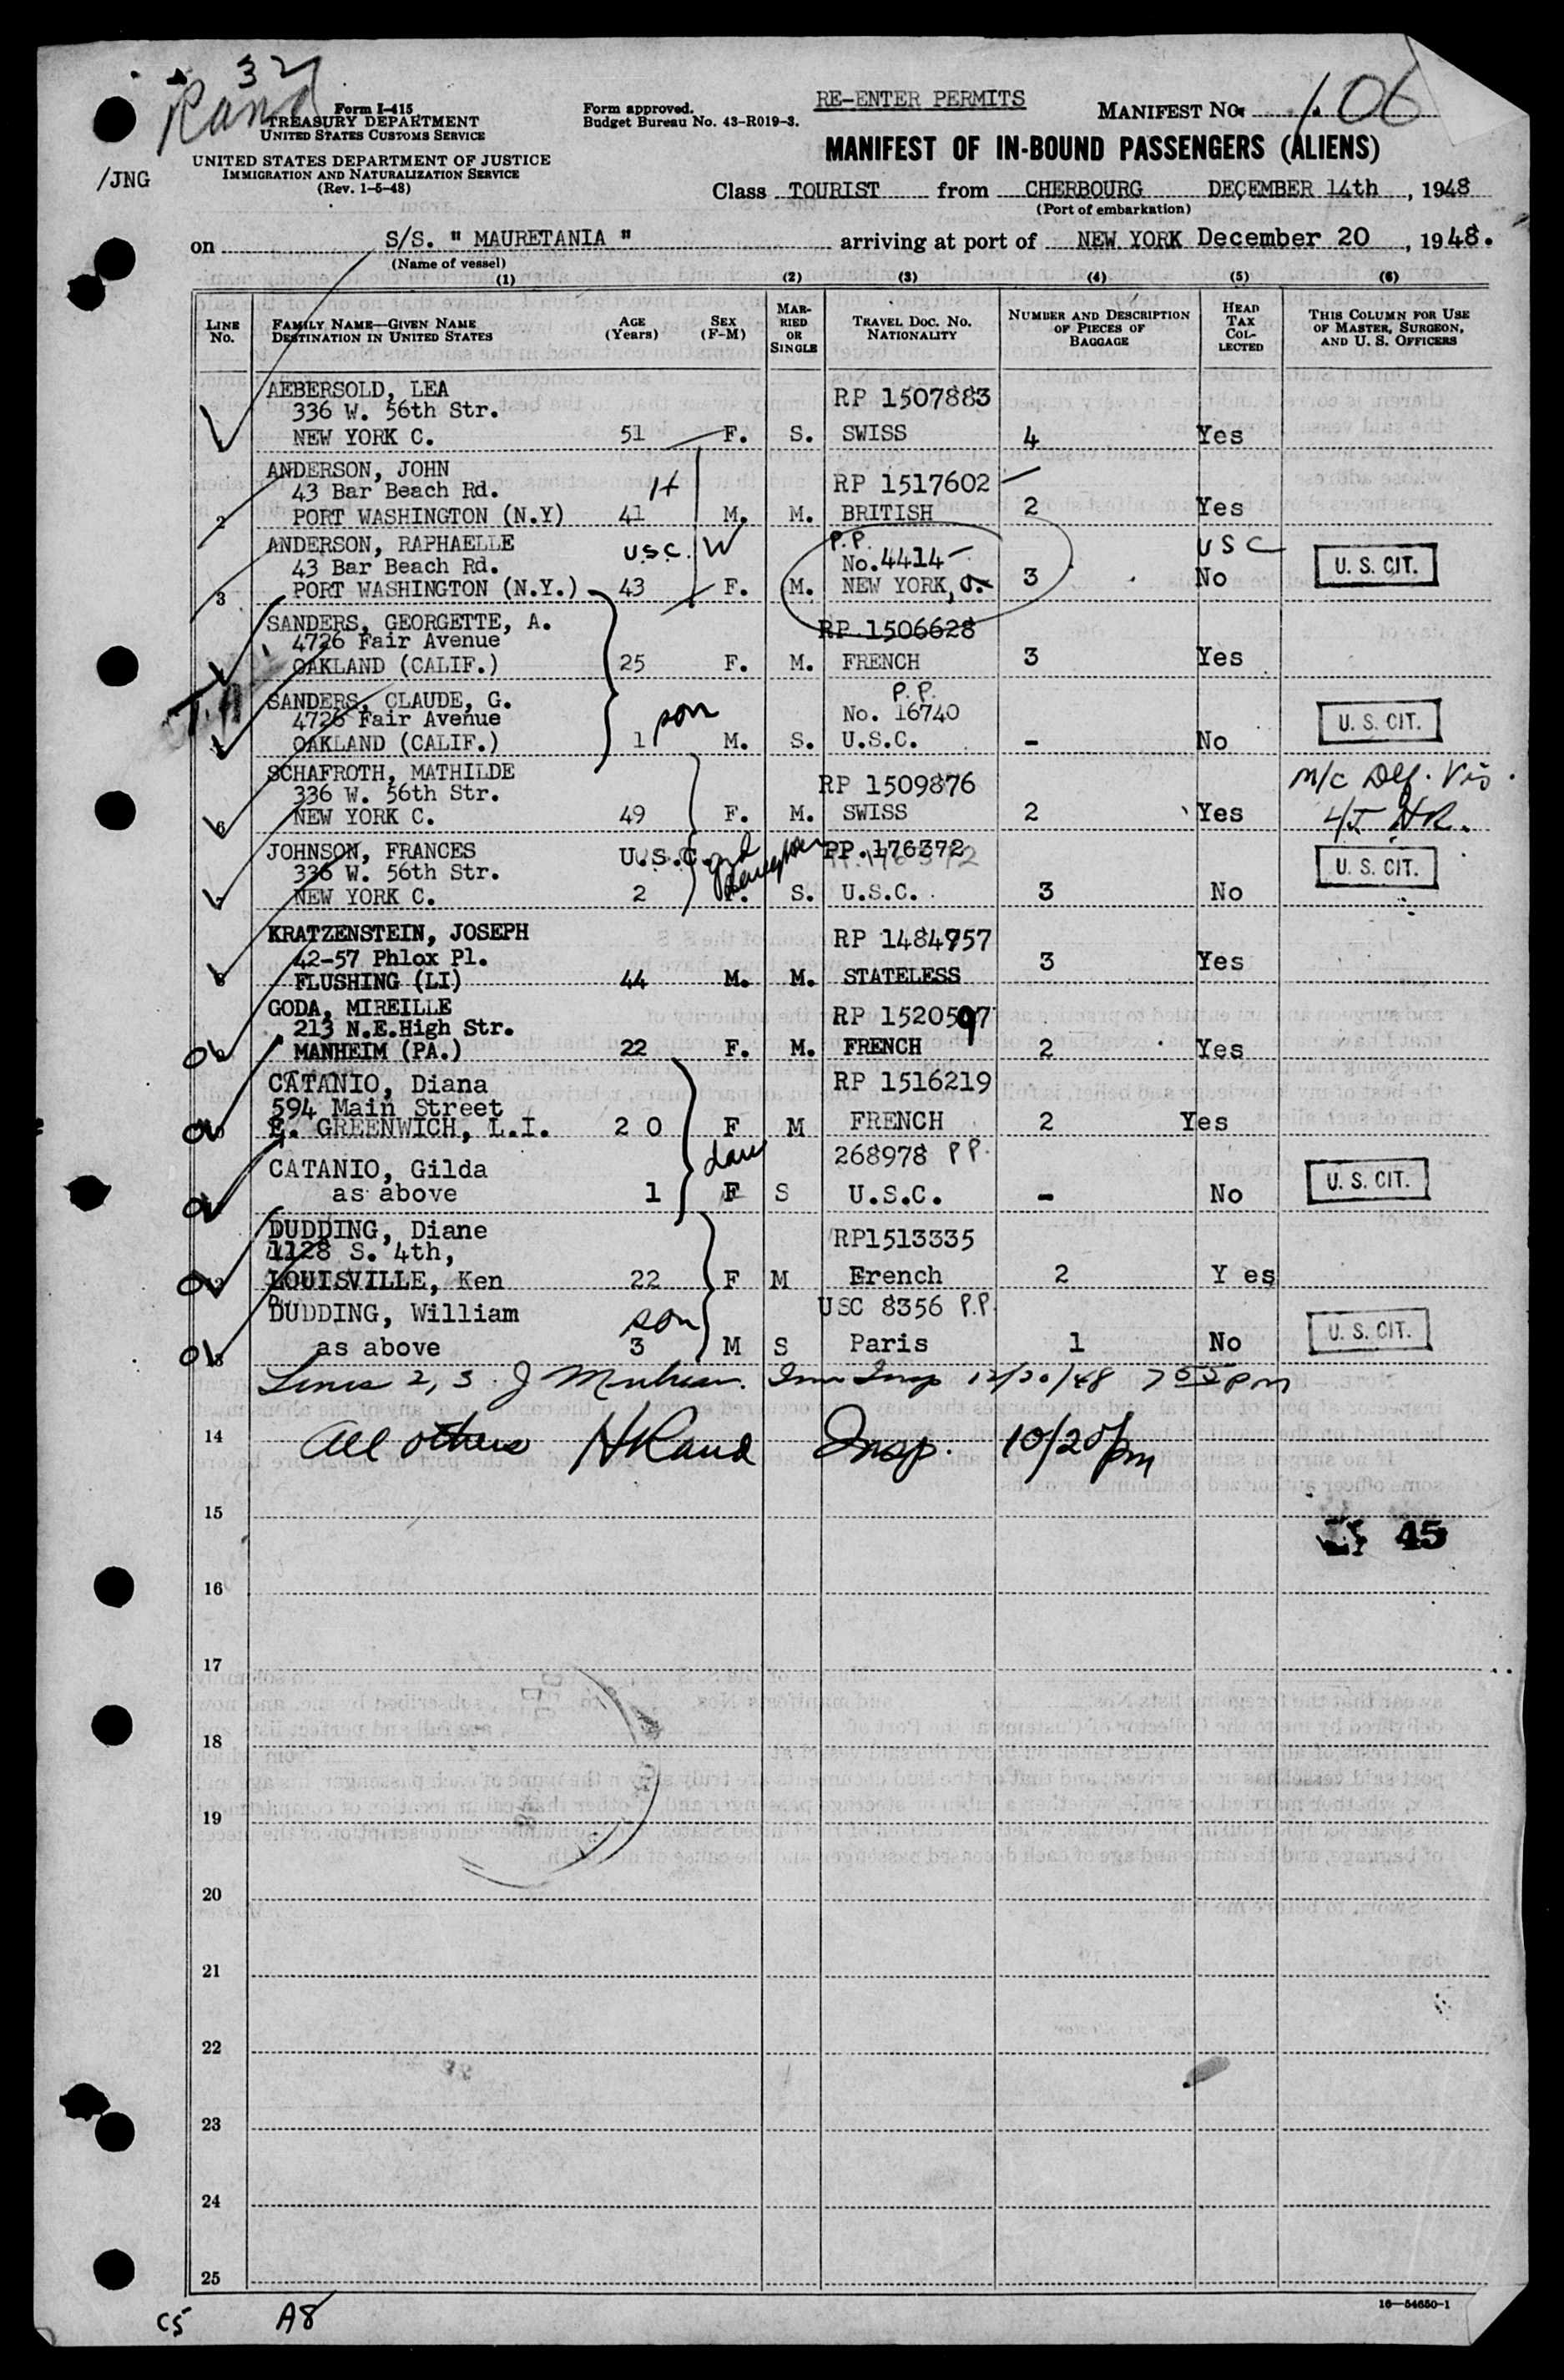 32
Rand
Form I-415
TREASURY DEPARTMENT
UNITED STATES CUSTOMS SERVICE
UNITED STATES DEPARTMENT OF JUSTICE
IMMIGRATION AND NATURALIZATION SERVICE
(Rev. 1-5-48)
/JNG
Form approved.
Budget Bureau No. 43-R019-3.
RE-ENTER PERMITS
MANIFEST No. 106
MANIFEST OF IN-BOUND PASSENGERS (ALIENS)
Class TOURIST from CHERBOURG DECEMBER 14th, 1948
(Port of embarkation)
on S/S. " MAURETANIA " arriving at port of NEW YORK December 20, 1948.
(Name of vessel)
(1) (2) (3) (4) (5) (6)
LINE No. FAMILY NAME—GIVEN NAME DESTINATION IN UNITED STATES AGE (Years) SEX (F-M) MARRIED OR SINGLE TRAVEL DOC. NO. NATIONALITY NUMBER AND DESCRIPTION OF PIECES OF BAGGAGE HEAD TAX COLLECTED THIS COLUMN FOR USE OF MASTER, SURGEON, AND U. S. OFFICERS
AEBERSOLD, LEA RP 1507883
336 W. 56th Str.
NEW YORK C. 51 F. S. SWISS 4 Yes
ANDERSON, JOHN RP 1517602
43 Bar Beach Rd. H
2 PORT WASHINGTON (N.Y) 41 M. M. BRITISH 2 Yes
ANDERSON, RAPHAELLE U.S.C. W P.P. No. 4414 U S C
43 Bar Beach Rd. U. S. CIT.
3 PORT WASHINGTON (N.Y.) 43 F. M. NEW YORK, 3 No
SANDERS, GEORGETTE, A. RP 1506628
4726 Fair Avenue
OAKLAND (CALIF.) 25 F. M. FRENCH 3 Yes
SANDERS, CLAUDE, G. P.P.
4726 Fair Avenue son No. 16740 U. S. CIT.
OAKLAND (CALIF.) 1 M. S. U.S.C. - No
SCHAFROTH, MATHILDE RP 1509876
336 W. 56th Str.
6 NEW YORK C. 49 F. M. SWISS 2 Yes HR.
JOHNSON, FRANCES U.S.C. PP. 176372
336 W. 56th Str. U. S. CIT.
NEW YORK C. 2 F. S. U.S.C. 3 No
KRATZENSTEIN, JOSEPH RP 1484957
42-57 Phlox Pl.
8 FLUSHING (LI) 44 M. M. STATELESS 3 Yes
GODA, MIREILLE RP 1520597
213 N.E.High Str.
MANHEIM (PA.) 22 F. M. FRENCH 2 Yes
CATANIO, Diana RP 1516219
594 Main Street
E. GREENWICH, L.I. 2 0 F M FRENCH 2 Yes
CATANIO, Gilda dau 268978 P P.
as above 1 F S U.S.C. - No U. S. CIT.
DUDDING, Diane RP1513335
1128 S. 4th,
LOUISVILLE, Ken 22 F M French 2 Y es
DUDDING, William son USC 8356 P.P.
as above 3 M S Paris 1 No U. S. CIT.
Lines 2, 3 Imm Insp 12/20/48 7 55 pm
14 All others HRand Insp. 10/20/pm
15
45
16
17
18
19
20
21
22
23
24
25
16—54650-1
C5 A8